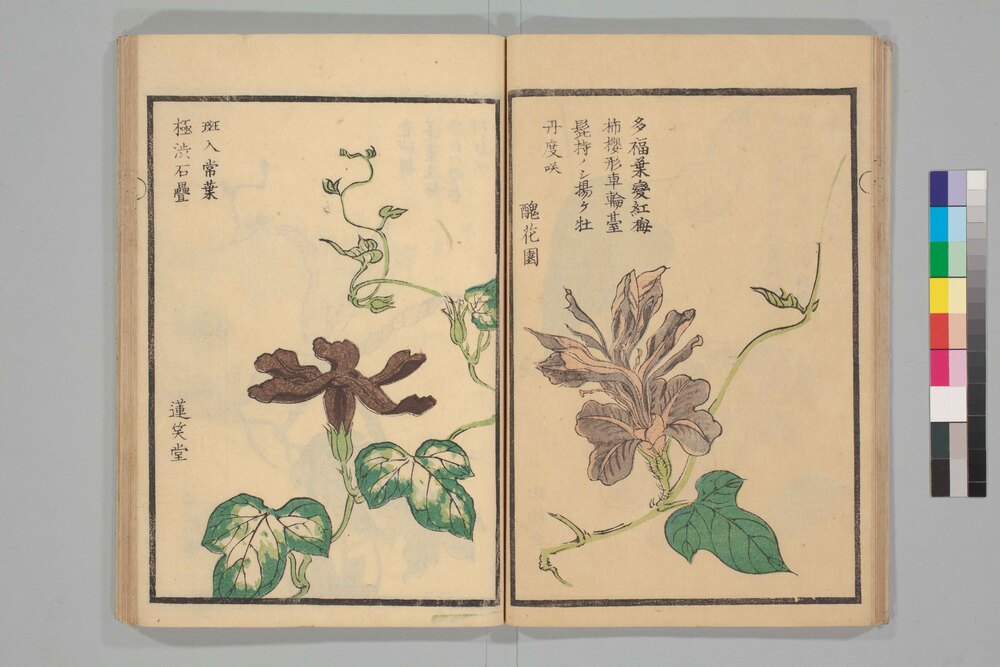 多福葉變紅梅
柿櫻形車輪臺
髭持ノシ揚ケ牡
丹度咲
醜花園
斑入常葉
極渋石疊
蓮笑堂